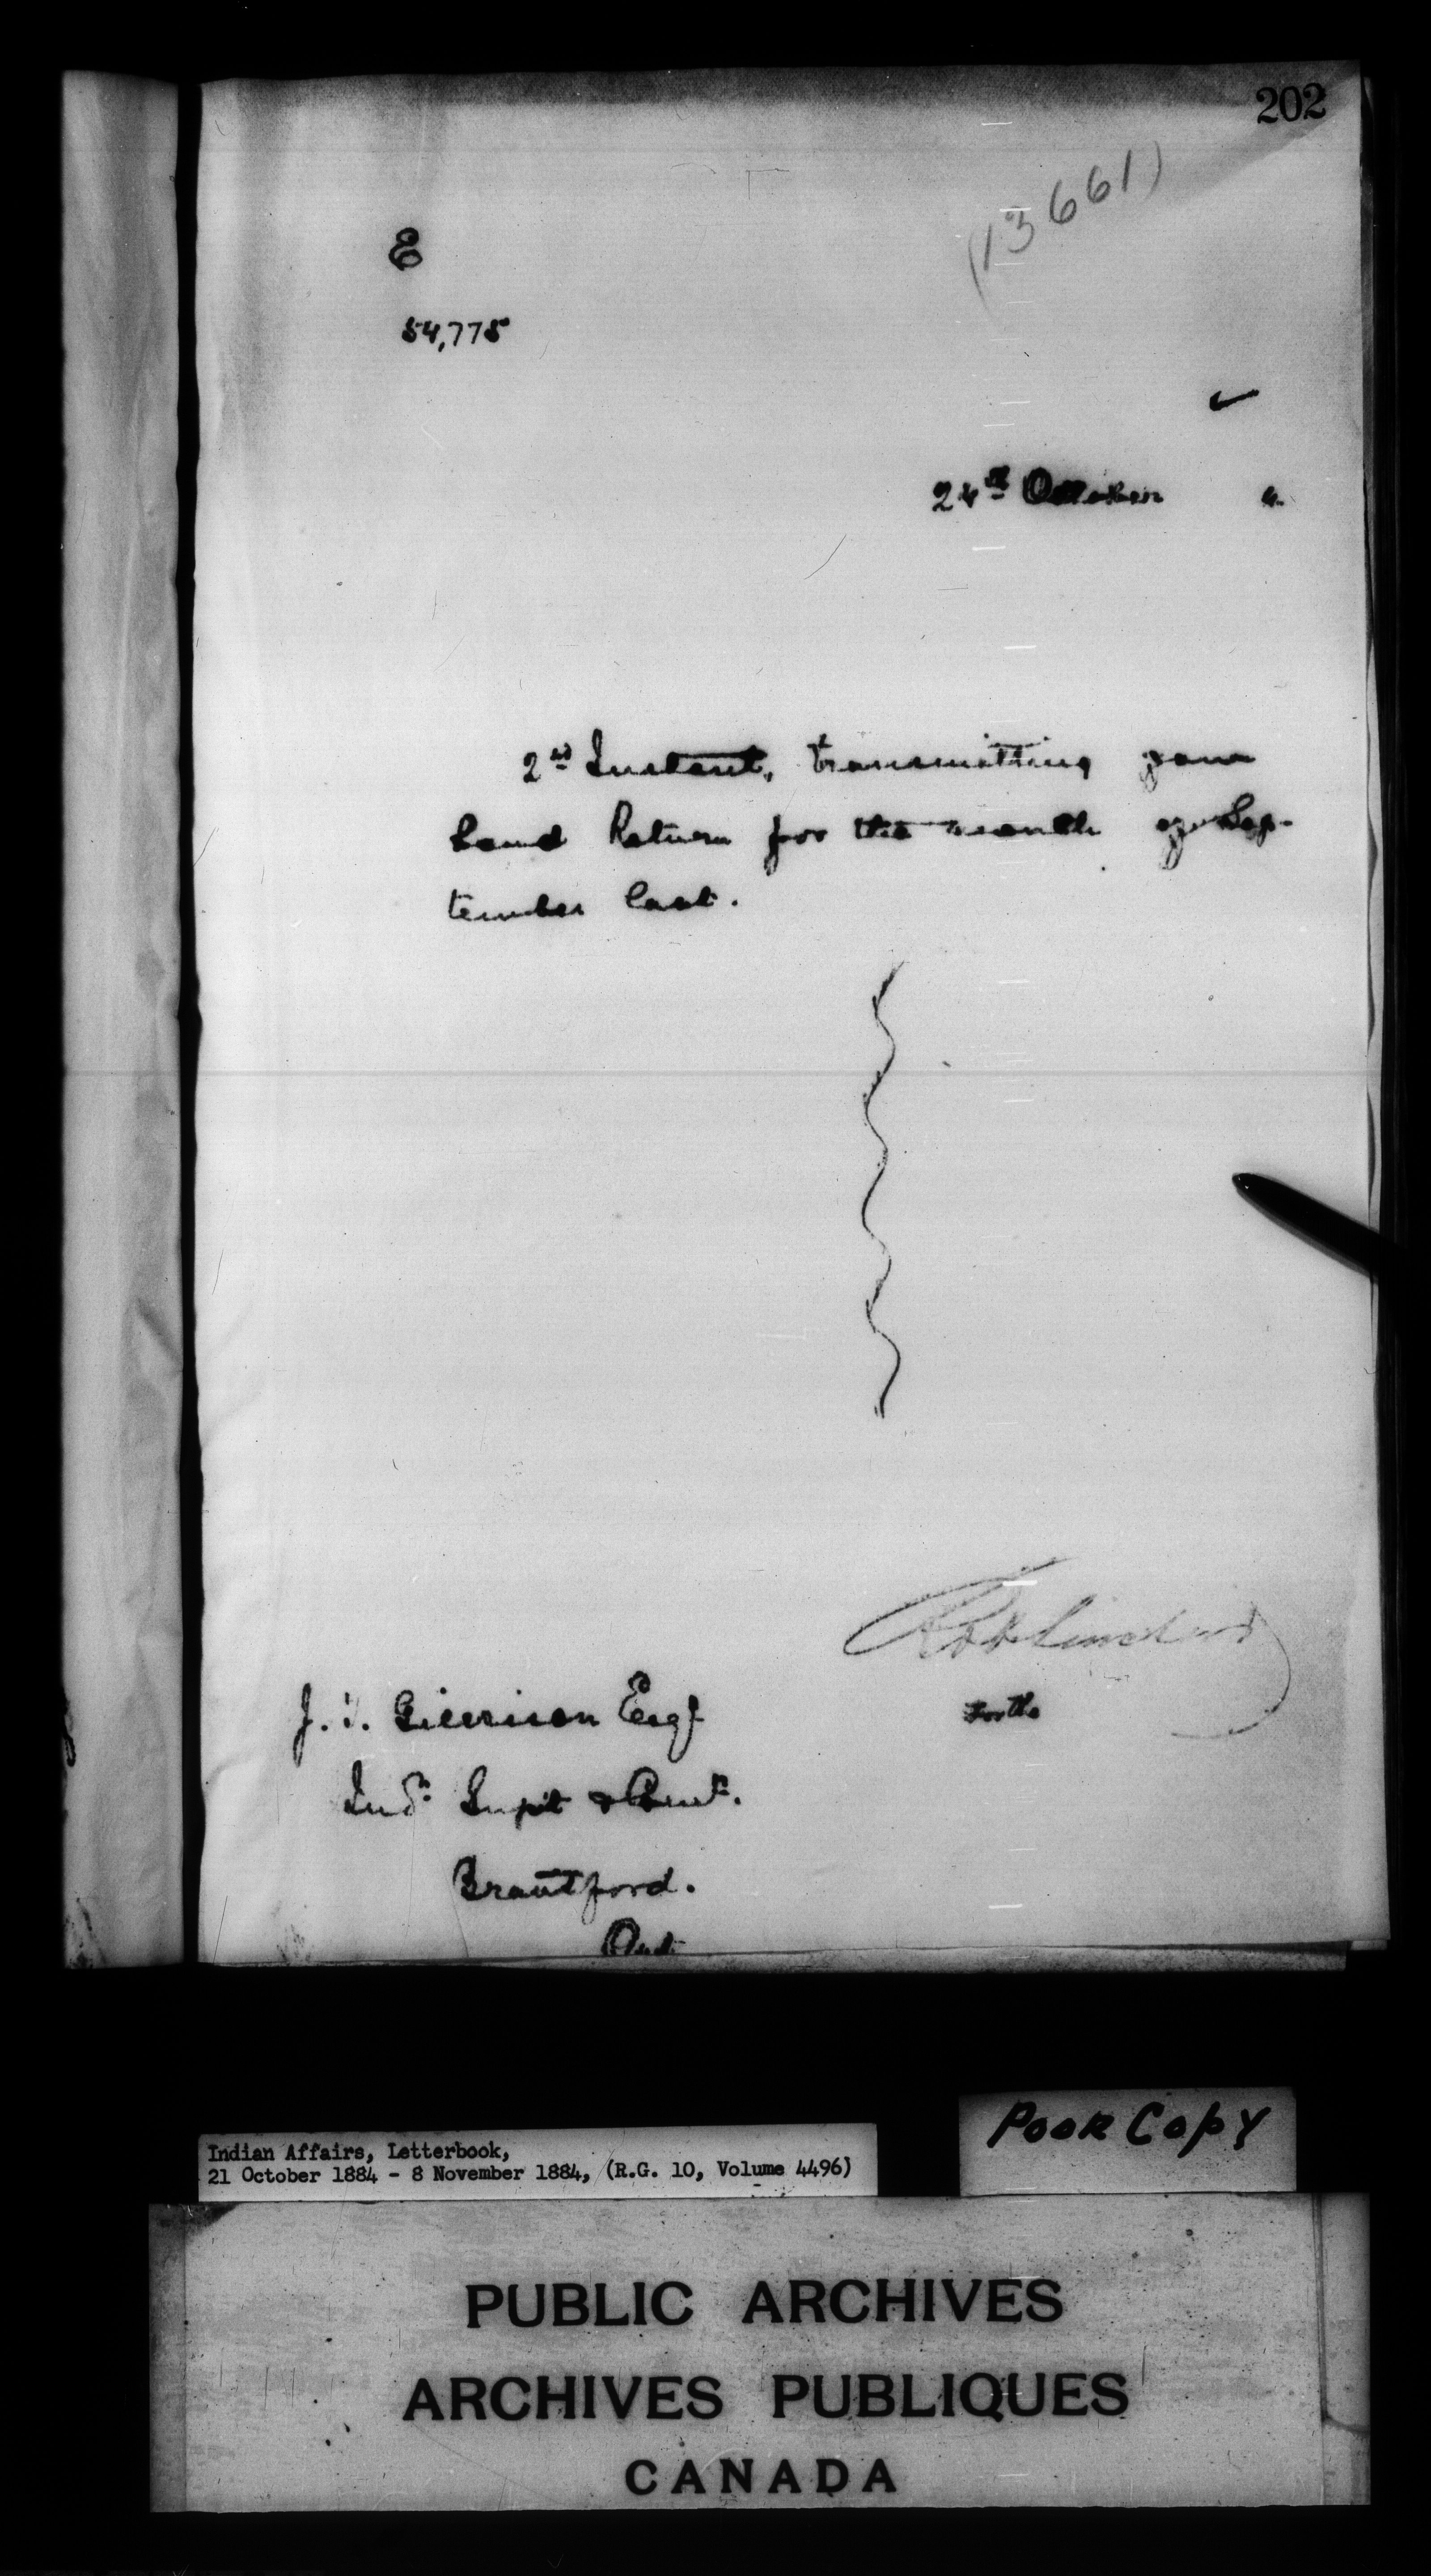 202
(13661)
E
54,775
24th October 4.
2nd Instant, transmitting your
Land Return for the month of Sep-
tember last.
J. T. Gilkison Esqr
Ind. Supt & Comr.
Brantford.
Ont
For the
Poor Copy
Indian Affairs, Letterbook,
21 October 1884 - 8 November 1884, (R.G. 10, Volume 4496)
PUBLIC ARCHIVES
ARCHIVES PUBLIQUES
CANADA